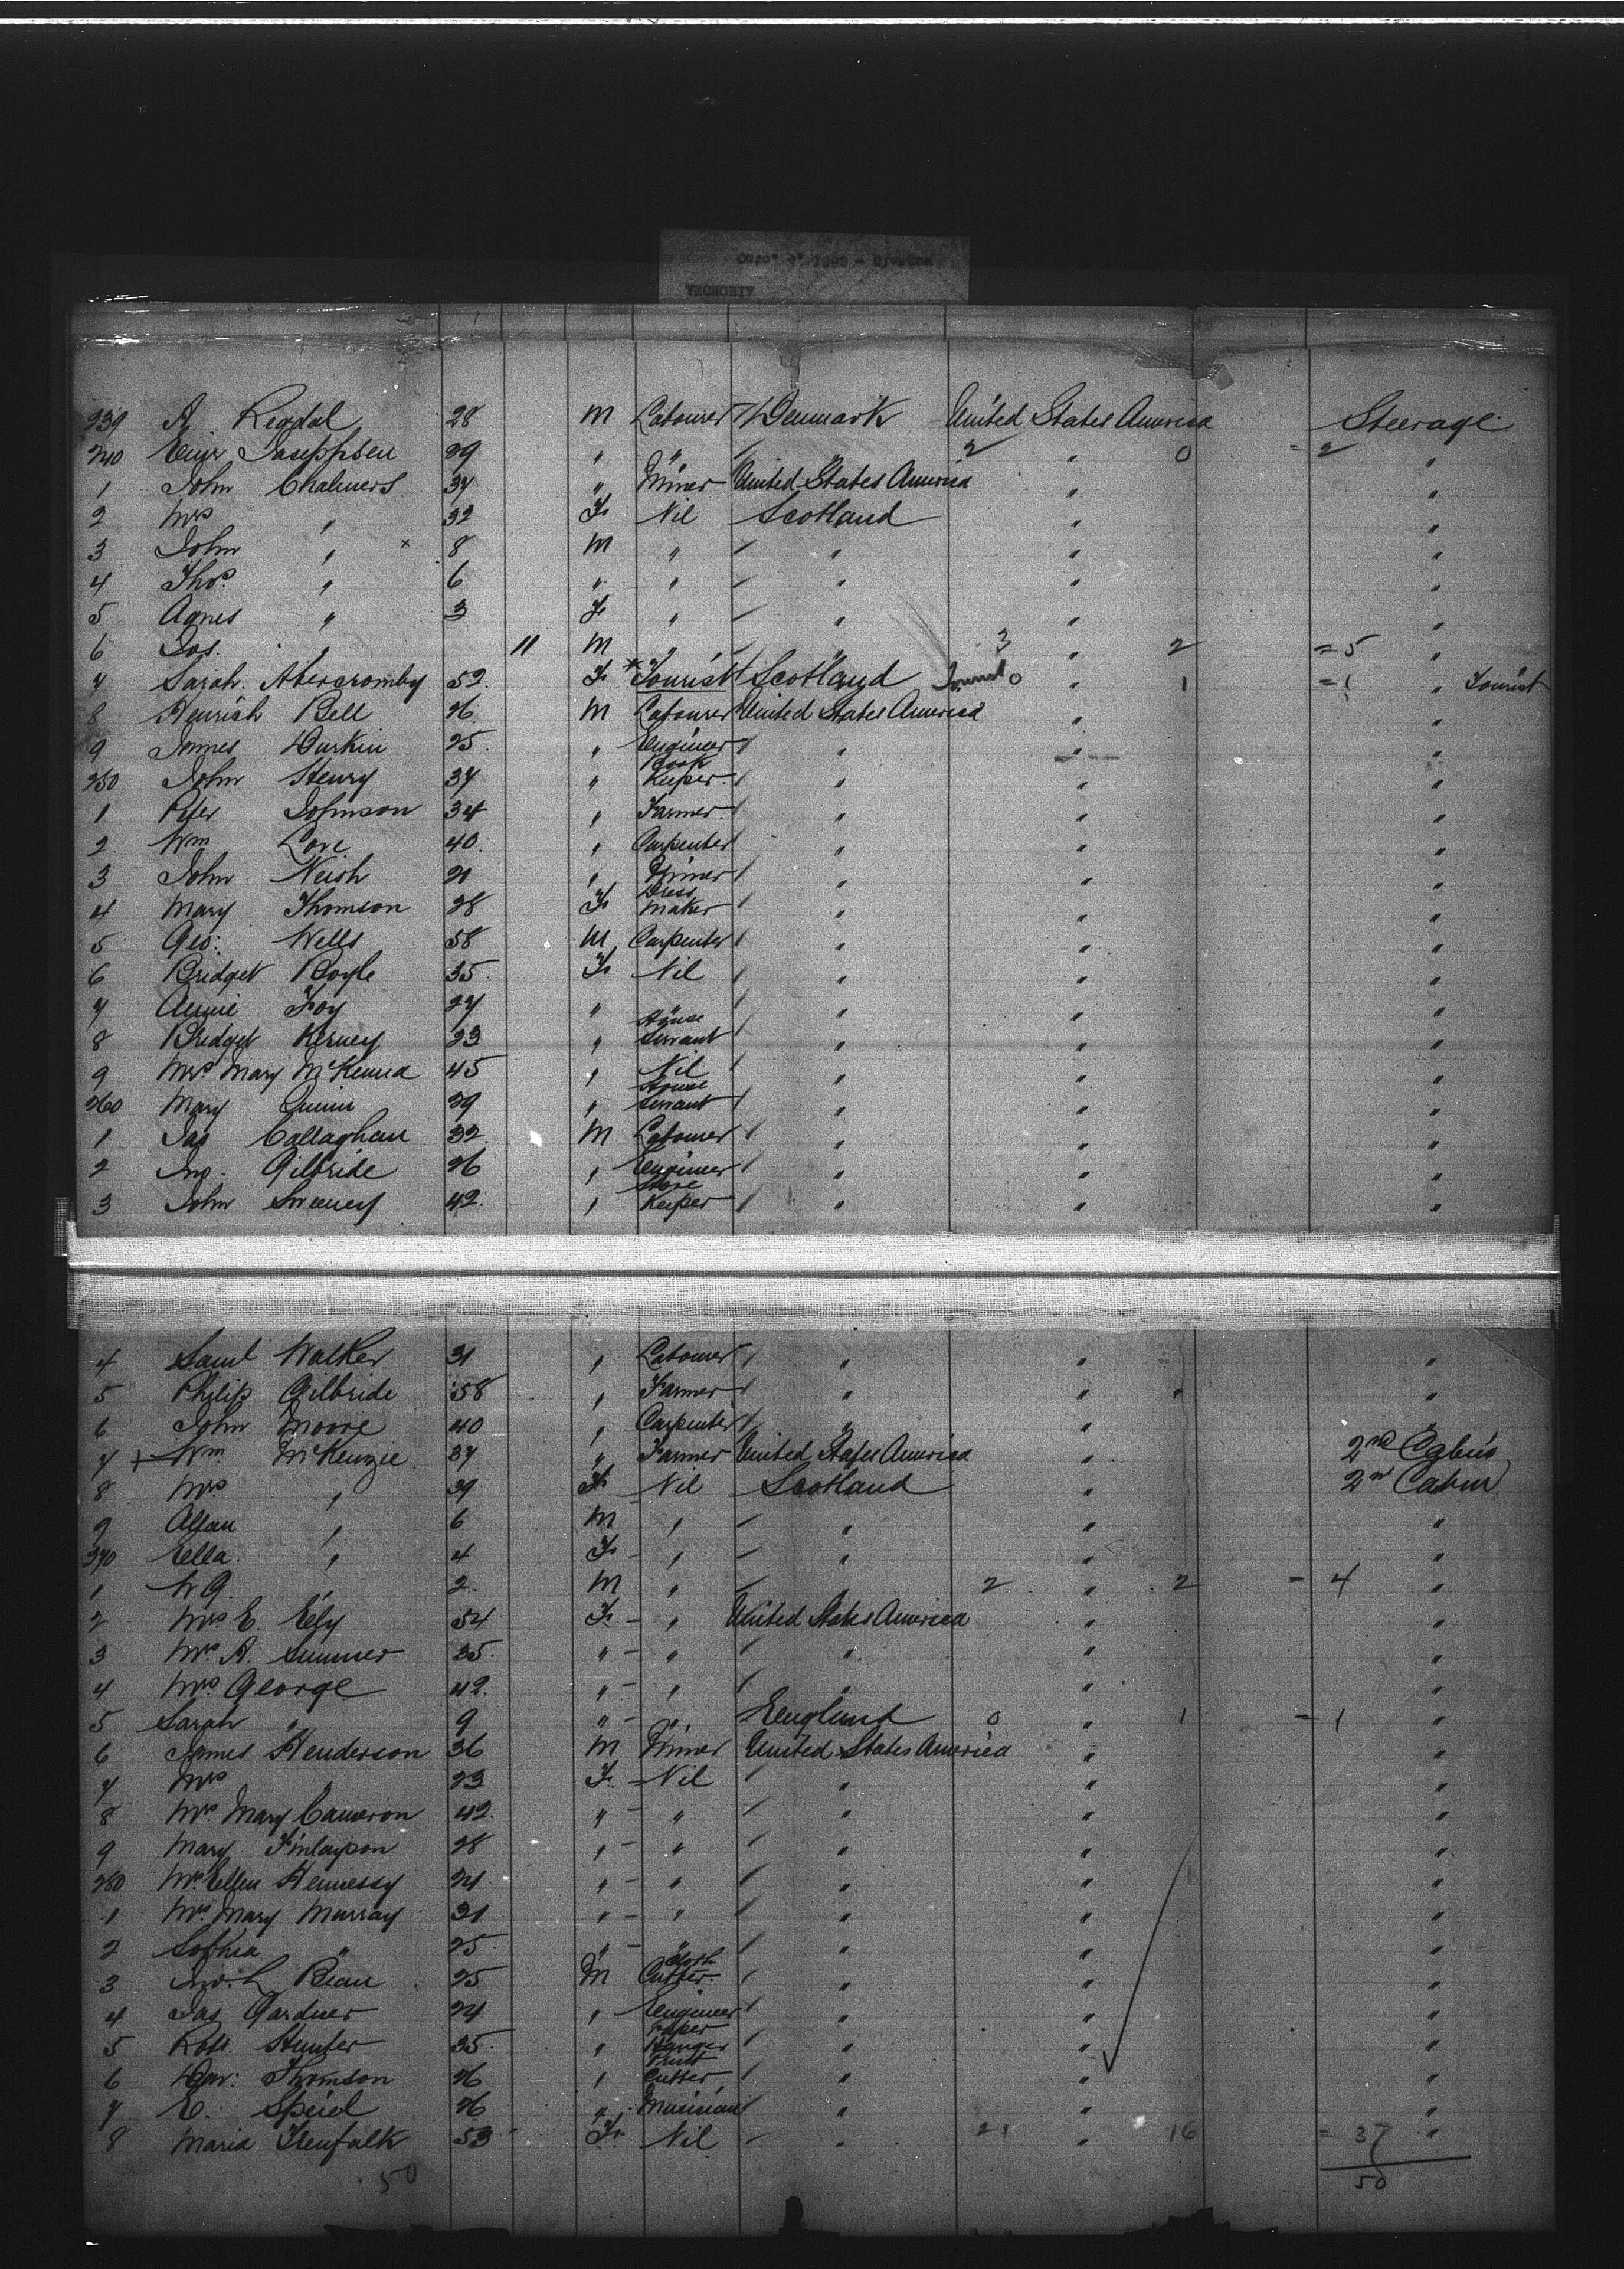 239 A. Regdal 28 M Labourer Denmark United States America Steerage
240 Einer Joseppsen 29 " " " 2 " 0 = 2 "
1 John Chalmers 34 " Miner United States America " "
2 Mrs " 32 F Nil Scotland " "
3 John " x 8 M " " " "
4 Thos. " 6 " " " " "
5 Agnes " 3 F " " " "
6 Jas. " 11 M " " 3 " 2 = 5 "
7 Sarah Abercromby 52 F * Tourist Scotland Tourist 0 " 1 = 1 " Tourist
8 Henrich Bell 26 M Labourer United States America " "
9 James Durkin 25 " Engineer " " "
250 John Henry 37 " Book Keeper " " "
1 Peter Johnson 34 " Farmer " " "
2 Wm Love 40 " Carpenter " " "
3 John Neish 21 " Miner " " "
4 Mary Thomson 28 F Dress Maker " " "
5 Geo: Wells 58 M Carpenter " " "
6 Bridget Boyle 35 F Nil " " "
7 Annie Foy 27 " " " " "
8 Bridget Kerney 23 " House Servant " " "
9 Mrs Mary McKenna 45 " Nil " " "
260 Mary Quinn 39 " House Servant " " "
1 Jas Callaghan 32 M Labourer " " "
2 Jno. Gilbride 26 " Engineer " " "
3 John Sweeney 42 " Store Keeper " " "
4 Saml Walker 31 " Labourer " " "
5 Philip Gilbride 58 " Farmer " " "
6 John Moore 40 " Carpenter " " "
7 + Wm McKenzie 37 " Farmer United States America 2nd Cabin
8 Mrs " 39 F Nil Scotland " 2n Cabin
9 Allan " 6 M " " " "
270 Ella " 4 F " " " "
1 W G. " 2 M " 2 " 2 = 4 "
2 Mrs E. Eely 54 F " United States America " "
3 Mrs A. Sumner 35 " " " " "
4 Mrs George 42 " " " " "
5 Sarah " 9 " " England 0 " 1 = 1 "
6 James Henderson 36 M Miner United States America " "
7 Mrs " 23 F Nil " " "
8 Mrs Mary Cameron 42 " " " " "
9 Mary Finlayson 28 " " " " "
280 Mrs Ellen Hennessy 24 " " " " "
1 Mrs Mary Murray 31 " " " " "
2 Sophia " 25 " " " " "
3 Jno. L Bean 25 M Cloth Cutter " " "
4 Jas Gardner 24 " Engineer " " "
5 Robt. Hunter 35 " Paper Hanger " " "
6 Dav: Thomson 26 " Cutter " " "
7 E. Speid 26 " Musician " " "
8 Maria Flenfalk 53 F Nil " 21 " 16 = 37 "
50 50